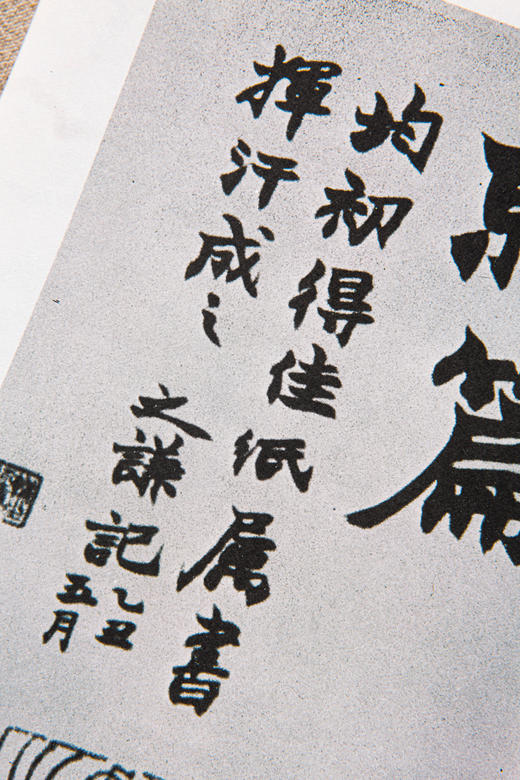 篇
均初得佳紙属書
揮汗成之 之謙記
乙丑
五月